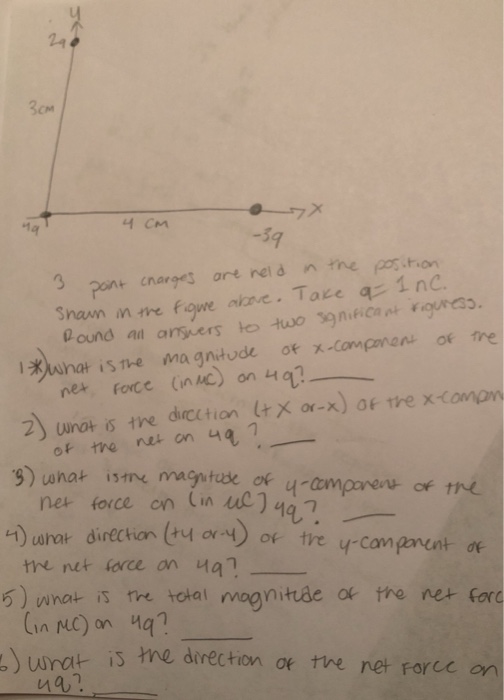 y
2q
3cm
4q
4 cm
X
-3q
3 point charges are held in the position
shown in the figure above. Take q = 1 nC.
Round all answers to two significant figuress.
1*) what is the magnitude of x-component of the
net force (in μC) on 4q? ____
2) what is the direction (+x or -x) of the x-compon
of the net on 4q? ____
3) what is the magnitude of y-component of the
net force on (in uC) 4q? ____
4) what direction (+y or -y) of the y-component of
the net force on 4q? ____
5) what is the total magnitude of the net forc
(in μC) on 4q? ____
6) what is the direction of the net force on
4q? ____